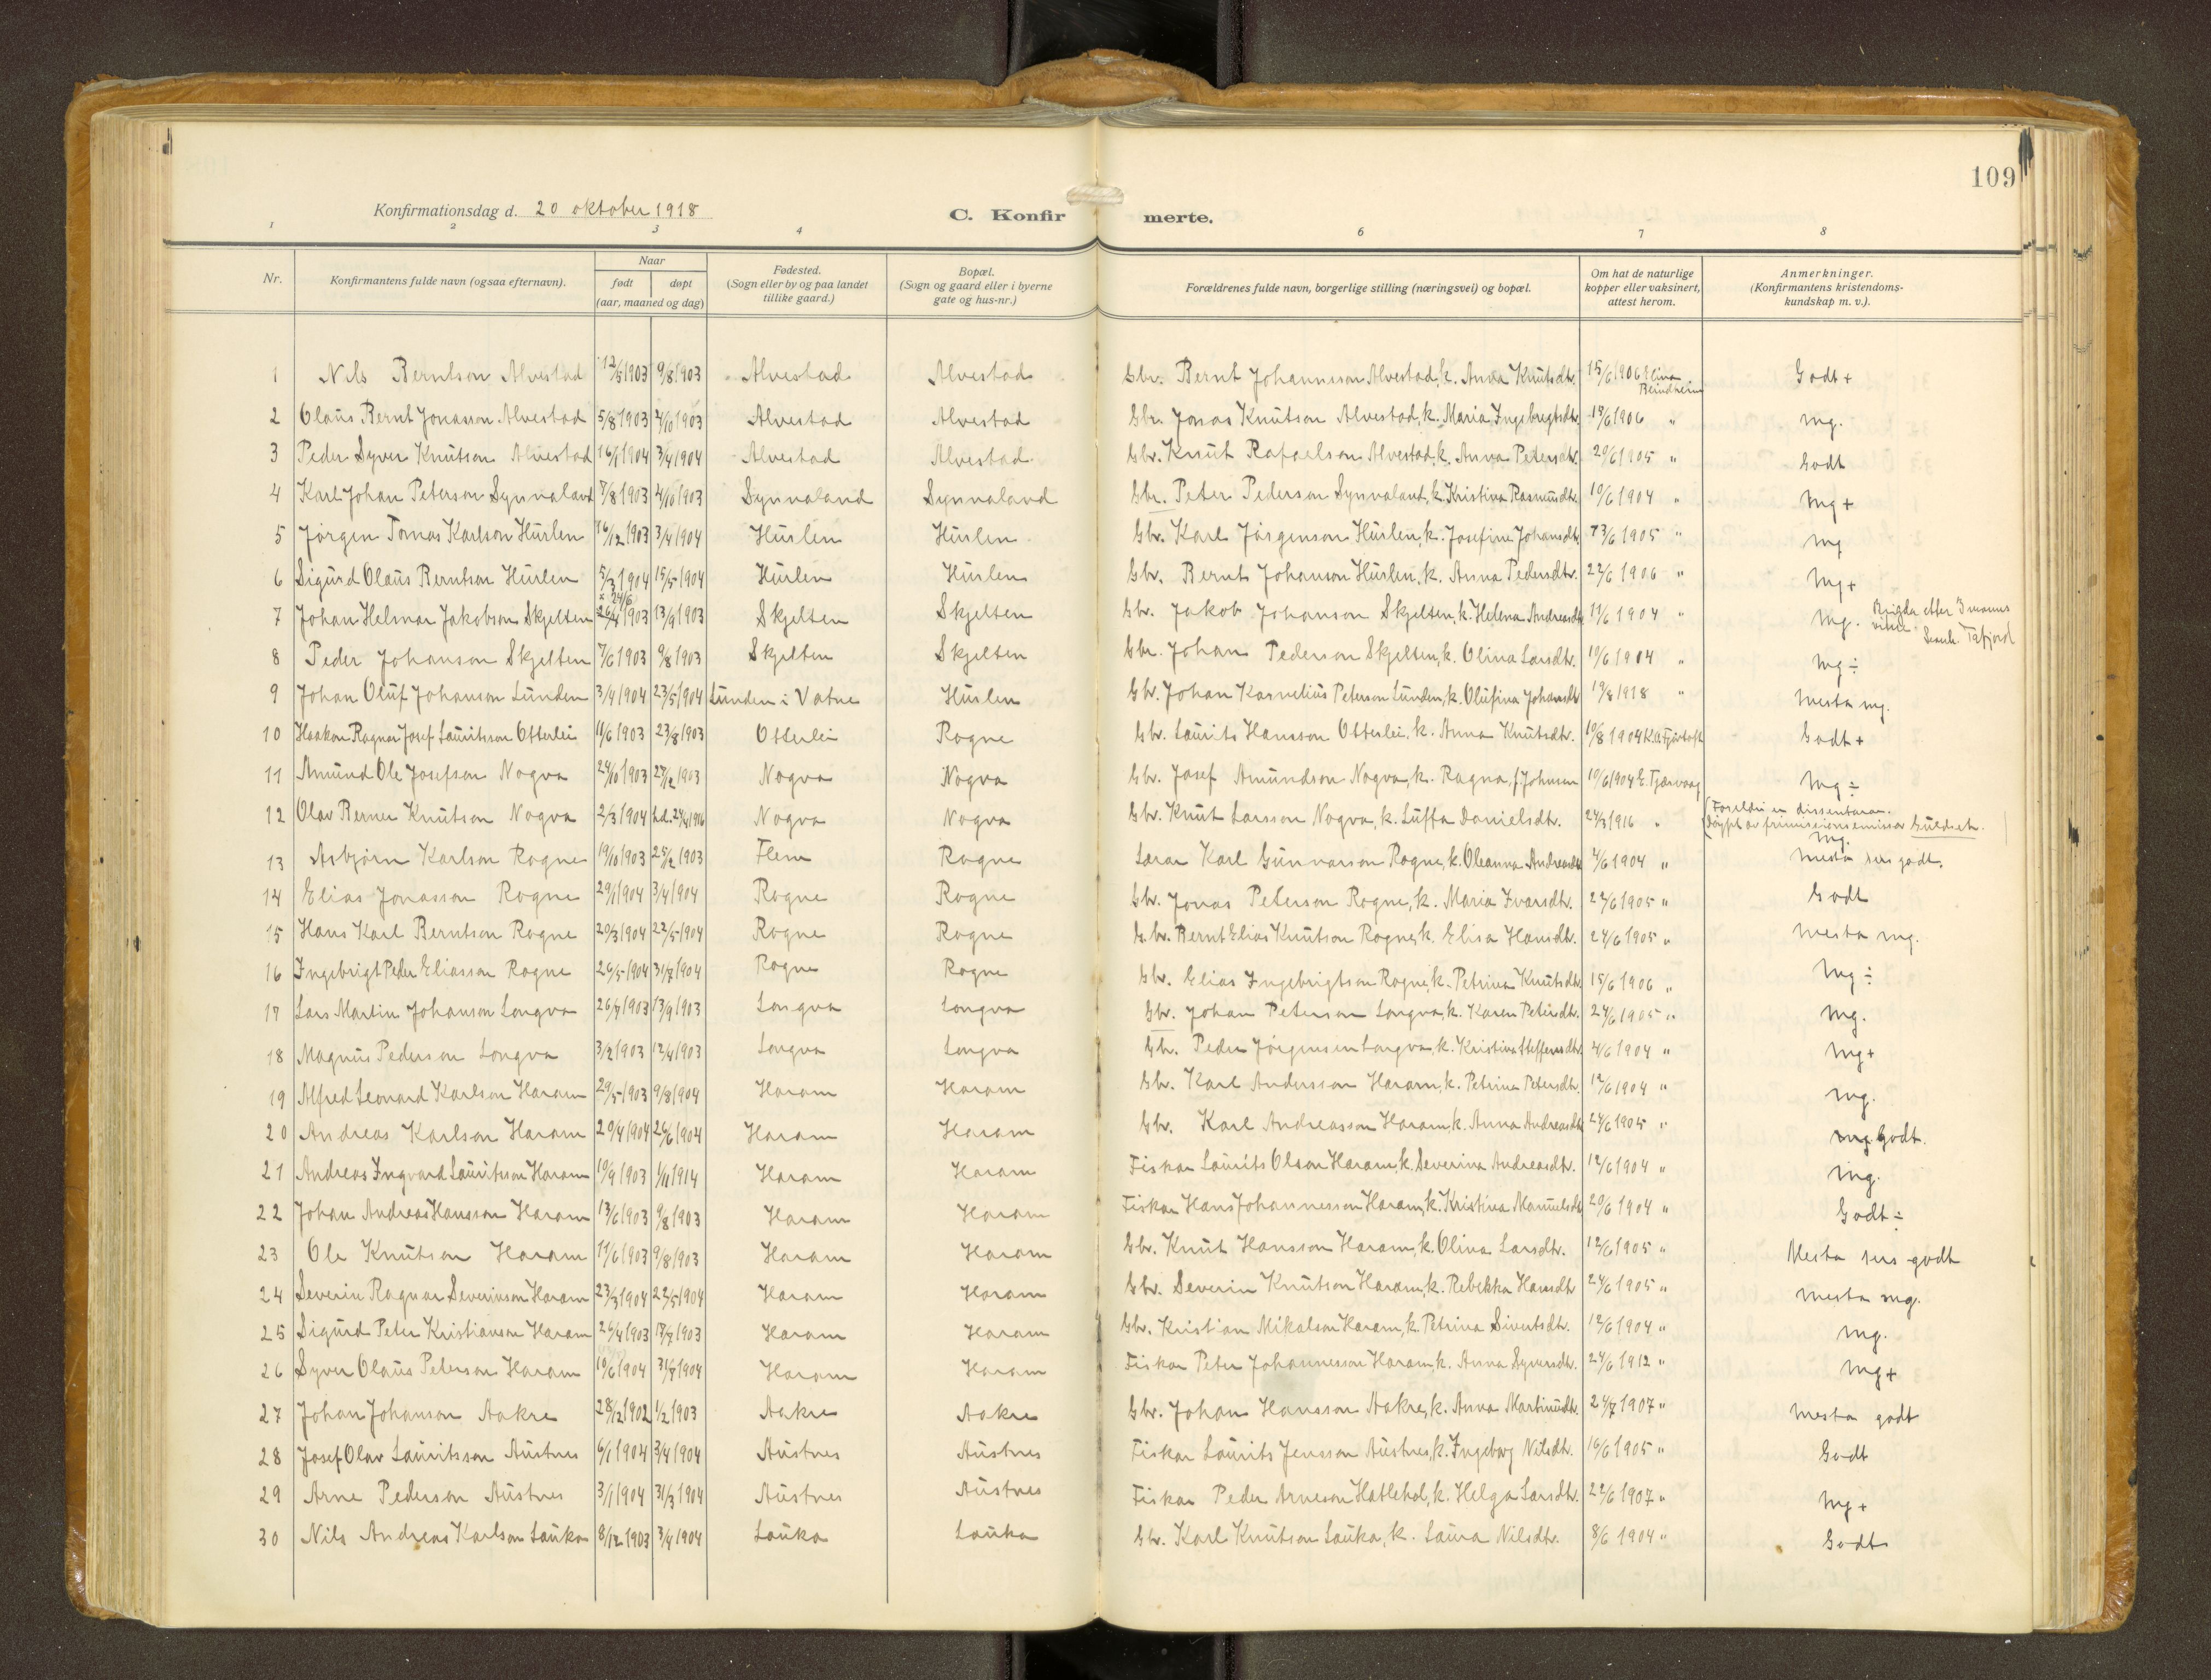 109
Konfirmationsdag d. 20 oktober 1918
C. Konfir merte.
1 2 3 4 6 7 8
Nr.
Konfirmantens fulde navn (ogsaa efternavn).
Naar
født døpt
(aar, maaned og dag)
Fødested.
(Sogn eller by og paa landet
tillike gaard.)
Bopæl.
(Sogn og gaard eller i byerne
gate og hus-nr.)
Forældrenes fulde navn, borgerlige stilling (næringsvei) og bopæl.
Om hat de naturlige
kopper eller vaksinert,
attest herom.
Anmerkninger.
(Konfirmantens kristendoms-
kundskap m. v.).
1 Nils Berntson Alvestad 12/5 1903 9/8 1903 Alvestad Alvestad Gbr. Bernt Johannsson Alvestad, k. Anna Knutsdtr. 15/6 1906 Elina Blindheim Godt+
2 Olaus Bernt Jonasson Alvestad 5/8 1903 4/10 1903 Alvestad Alvestad Gbr. Jonas Knutson Alvestad, k. Maria Ingebrigtsdtr. 15/6 1906 " mg.
3 Peder Syver Knutson Alvestad 16/1 1904 3/4 1904 Alvestad Alvestad Gbr. Knut Rafaelson Alvestad, k. Anna Petersdtr. 20/6 1905 " Godt
4 Karl Johan Peterson Synnaland 7/8 1903 4/10 1903 Synnaland Synnaland Gbr. Peter Pederson Synnaland, k. Kristina Rasmusdtr. 10/6 1904 " mg+
5 Jørgen Tomas Karlson Hurlen 16/12 1903 3/4 1904 Hurlen Hurlen Gbr. Karl Jørgenson Hurlen, k. Josefine Johansdtr. 23/6 1905 " mg
6 Sigurd Olaus Berntson Hurlen 5/3 1904 15/5 1904 Hurlen Hurlen Gbr. Bernt Johanson Hurlen, k. Anna Pedersdtr. 22/6 1906 " mg+
x 24/6
7 Johan Helmer Jakobson Skjelten 26/4 1903 13/9 1903 Skjelten Skjelten Gbr. Jakob Johanson Skjelten, k. Helena Andreasdtr 11/6 1904 " mg. Tafjord
8 Peder Johanson Skjelten 7/6 1903 9/8 1903 Skjelten Skjelten Gbr. Johan Pederson Skjelten, k. Olina Larsdtr. 10/6 1904 " mg÷
9 Johan Oluf Johanson Lunden 3/4 1904 23/5 1904 Lunden i Vatne Hurlen Gbr. Johan Kornelius Peterson Lunden, k. Olufina Johansdtr 19/8 1918 " mesta mg.
10 Haakon Ragnar Josef Lauritsson Otterlei 11/6 1903 23/8 1903 Otterlei Rogne Gbr. Laurits Hansson Otterlei, k. Anna Knutsdtr. 10/8 1904 K.A. Fjørtoft Godt+
11 Amund Ole Josefson Nogva 24/10 1903 27/12 1903 Nogva Nogva Gbr. Josef Amundson Nogva, k. Ragna, f. Johnsen 10/6 1904 E. Tjærvaag mg÷
12 Olav Berner Knutson Nogva 2/3 1904 h.d. 24/4 1916 Nogva Nogva Gbr. Knut Larsson Nogva, k. Luffa Danielsdtr. 24/3 1916 " Foreldri er dissentarar. Døypt av frimissionsemissær Guldseth. mg.
13 Asbjørn Karlson Rogne 19/10 1903 25/12 1903 Flem Rogne Lærar Karl Gunnarson Rogne, k. Oleanna Andreasdtr 4/6 1904 " mesta sers godt.
14 Elias Jonasson Rogne 29/1 1904 3/4 1904 Rogne Rogne Gbr. Jonas Peterson Rogne, k. Maria Ivarsdtr. 22/6 1905 " Godt
15 Hans Karl Berntson Rogne 20/3 1904 22/5 1904 Rogne Rogne Gbr. Bernt Elias Knutson Rogne, k. Elisa Hansdtr. 24/6 1905 " mesta mg.
16 Ingebrigt Peder Eliasson Rogne 26/5 1904 31/7 1904 Rogne Rogne Gbr. Elias Ingebrigtson Rogne, k. Petrina Knutsdtr. 15/6 1906 " mg÷
17 Lars Martin Johanson Longva 26/7 1903 13/9 1903 Longva Longva Gbr. Johan Peterson Longva, k. Karen Petersdtr. 24/6 1905 " mg.
18 Magnus Pederson Longva 3/2 1903 12/4 1903 Longva Longva Gbr. Peder Jørgensen Longva, k. Kristina Steffensdtr. 4/6 1904 " mg+
19 Alfred Leonard Karlson Haram 29/5 1903 9/8 1904 Haram Haram Gbr. Karl Andersson Haram, k. Petrina Petersdtr. 12/6 1904 " mg.
20 Andreas Karlson Haram 20/4 1904 26/6 1904 Haram Haram Gbr. Karl Andreasson Haram, k. Anna Andreasdtr 24/6 1905 " mg. Godt.
21 Andreas Ingvard Lauritsson Haram 10/9 1903 1/11 1914 Haram Haram Fiskar Laurits Olson Haram, k. Severina Andreasdtr. 12/6 1904 " mg.
22 Johan Andreas Hansson Haram 13/6 1903 9/8 1903 Haram Haram Fiskar Hans Johannesson Haram, k. Kristina Manuelsdtr 20/6 1904 " Godt÷
23 Ole Knutson Haram 11/6 1903 9/8 1903 Haram Haram Gbr. Knut Hansson Haram, k. Olina Larsdtr. 12/6 1905 " Mesta sers godt
24 Severin Ragnar Severinson Haram 23/3 1904 22/5 1904 Haram Haram Gbr. Severin Knutson Haram, k. Rebekka Hansdtr 24/6 1905 " mesta mg.
25 Sigurd Peter Kristianson Haram 26/4 1903 19/7 1903 Haram Haram Gbr. Kristian Mikalson Haram, k. Petrina Sivertsdtr. 12/6 1904 " mg.
26 Syver Olaus Peterson Haram 10/6 1904 31/7 1904 Haram Haram Fiskar Peter Johannesson Haram, k. Anna Syversdtr. 24/6 1912 " mg+
27 Johan Johanson Aakre 28/12 1902 1/2 1903 Aakre Aakre Gbr. Johan Hansson Aakre, k. Anna Martinusdtr. 24/7 1907 " mesta godt
28 Josef Olav Lauritsson Austnes 6/1 1904 3/4 1904 Austnes Austnes Fiskar Laurits Jensson Austnes, k. Ingeborg Nilsdtr. 16/6 1905 " Godt
29 Arne Pederson Austnes 3/1 1904 31/3 1904 Austnes Austnes Fiskar Peder Arneson Hatlehol, k. Helga Larsdtr. 22/6 1907 " mg+
30 Nils Andreas Karlson Lauka 8/12 1903 3/4 1904 Lauka Lauka Gbr. Karl Knutson Lauka, k. Laura Nilsdtr. 8/6 1904 " Godt